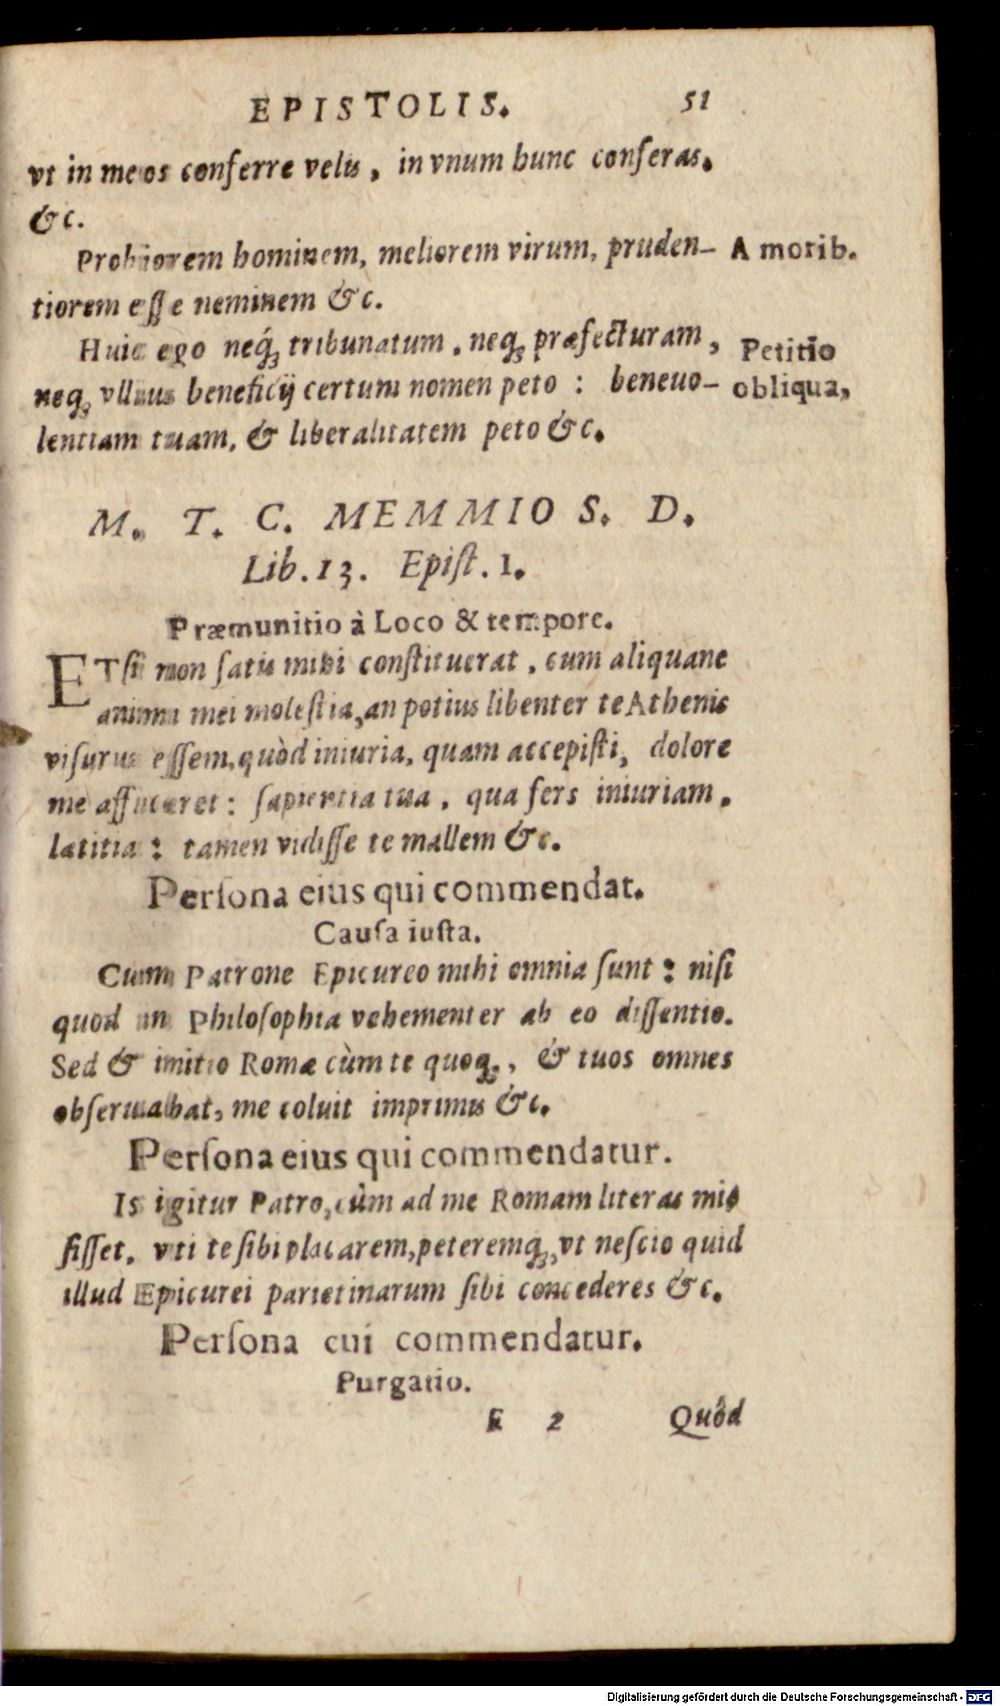 EPISTOLIS. 51
vt in meos conferre velis, in vnum hunc conferas.
&c.
Probiorem hominem, meliorem virum, pruden- A morib.
tiorem eſſe neminem &c.
Huic ego neq́ꝫ tribunatum, neqꝫ præfecturam, Petitio
neqꝫ vllius beneficij certum nomen peto : beneuo- obliqua,
lentiam tuam, & liberalitatem peto &c.
M. T. C. MEMMIO S. D.
Lib. 13. Epiſt. 1.
Præmunitio à Loco & tempore.
ETſi non ſatis mihi conſtituerat, cum aliquane
animi mei moleſtia, an potius libenter te Athenis
viſurus eſſem, quòd iniuria, quam accepiſti, dolore
me afficeret : ſapientia tua, qua fers iniuriam,
lætitia : tamen vidiſſe te mallem &c.
Perſona eius qui commendat.
Cauſa iuſta.
Cum Patrone Epicureo mihi omnia ſunt : niſi
quod in Philoſophia vehementer ab eo diſſentio.
Sed & initio Romæ cùm te quoqꝫ, & tuos omnes
obſeruabat, me coluit imprimis &c.
Perſona eius qui commendatur.
Is igitur Patro, cùm ad me Romam literas miſ
ſiſſet, vti te ſibi placarem, peteremqꝫ, vt neſcio quid
illud Epicurei parietinarum ſibi concederes &c.
Perſona cui commendatur.
Purgatio.
E 2 Quòd
Digitalisierung gefördert durch die Deutsche Forschungsgemeinschaft - DFG